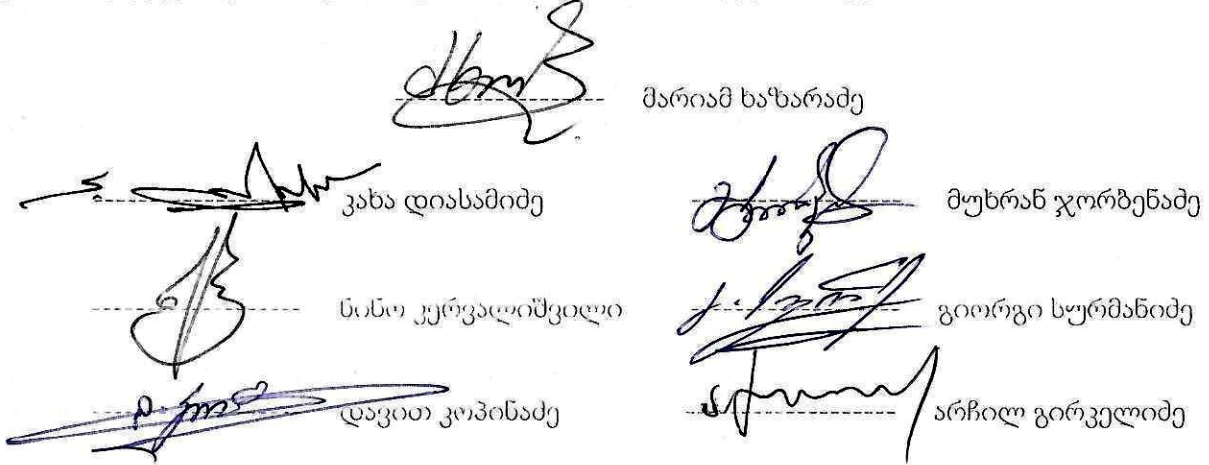 მარიამ ხაზარაძე
კახა დიასამიძე
მუხრან ჯორბენაძე
ნინო კერვალიშვილი
გიორგი სურმანიძე
დავით კოპინაძე
არჩილ გირკელიძე